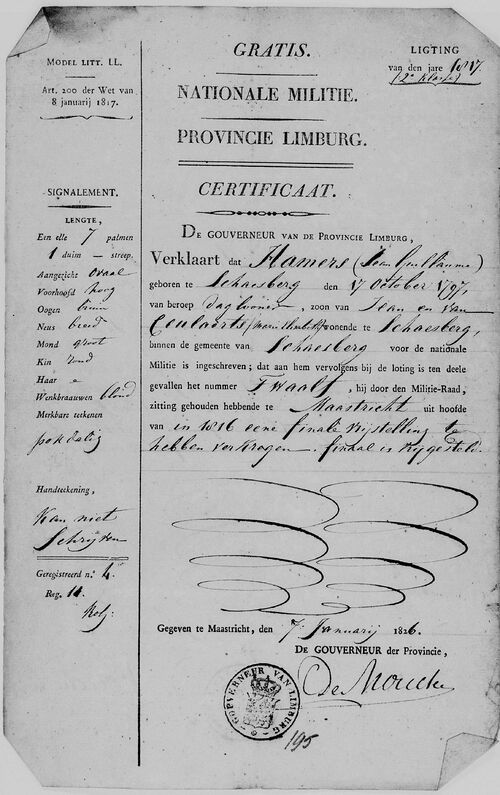 MODEL LITT. LL.
Art. 200 der Wet van
8 januarij 1817.
SIGNALEMENT.
LENGTE,
Een elle 7 palmen
1 duim — streep.
Aangezicht ovaal
Voorhoofd hoog
Oogen bruin
Neus breed
Mond groot
Kin rond
Haar
Wenkbraauwen blond
Merkbare teekenen
pokdalig
Handteekening,
Kan niet
Schrijven
Geregistreerd n.º 4.
Reg. 14
GRATIS.
NATIONALE MILITIE.
PROVINCIE LIMBURG.
CERTIFICAAT.
LIGTING
van den jare 1817.
(2e Klasse)
DE GOUVERNEUR VAN DE PROVINCIE LIMBURG,
Verklaart dat Hamers (Jean Guillaume)
geboren te Schaesberg den 17 October 1797,
van beroep daglooner, zoon van Jean en van
Ceulaerts wonende te Schaesberg,
binnen de gemeente van Schaesberg voor de nationale
Militie is ingeschreven; dat aan hem vervolgens bij de loting is ten deele
gevallen het nummer Twaalf, hij door den Militie-Raad,
zitting gehouden hebbende te Maastricht uit hoofde
van in 1816 eene finale vrijstelling te
hebben verkregen, finaal is vrijgesteld.
Gegeven te Maastricht, den 7 Januarij 1826.
DE GOUVERNEUR der Provincie,
GOUVERNEUR VAN LIMBURG
195